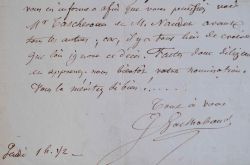 vous en informe afin que vous puissiez voir
Mr Taschereau et M. Naudet avant
tous les autres; car, il y a tout lieu de croire
que l'on ignore ce décès. Faites donc diligence
et apprenez-nous bientôt votre nomination
Vous la méritez si bien.
Tout à vous
Jeudi 16.